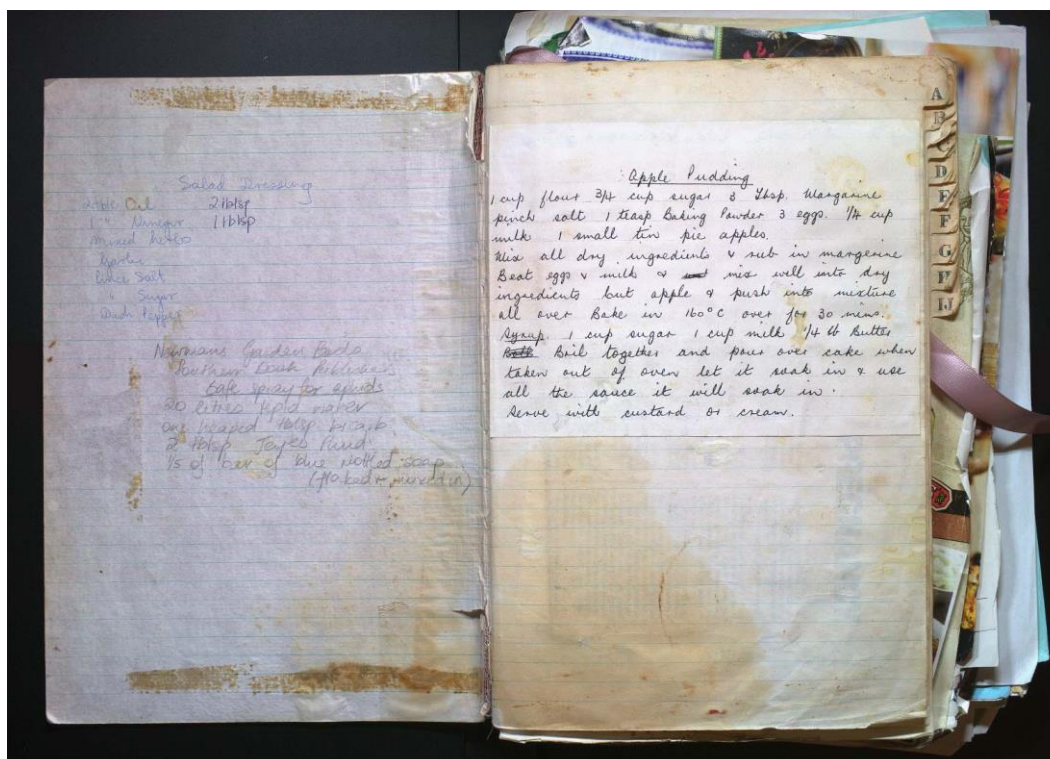 Salad Dressing
Oil 2 tblsp
Vinegar 1 tblsp
Mixed herbs
Garlic
Pince Salt
" Sugar
Dash Pepper
Newmans Garden Beds
Southern
Safe spray for aphids
20 litres water
one heaped tblsp bicarb
2 tblsp Jeyes Fluid
1/5 of bar of blue mottled soap
(flaked + mixed in)
Apple Pudding
1 cup flour 3/4 cup sugar 3 Tbsp. Margarine
pinch salt 1 teasp Baking Powder 3 eggs. 1/4 cup
milk 1 small tin pie apples.
Mix all dry ingredients & rub in margerine
Beat eggs & milk & mix well into dry
ingredients but apple & push into mixture
all over Bake in 160°C over for 30 mins.
Syrup. 1 cup sugar 1 cup milk 1/4 lb Butter
Boil together and pour over cake when
taken out of oven let it soak in & use
all the sauce it will soak in.
Serve with custard or cream.
A
B
C
D
E
F
G
H
IJ